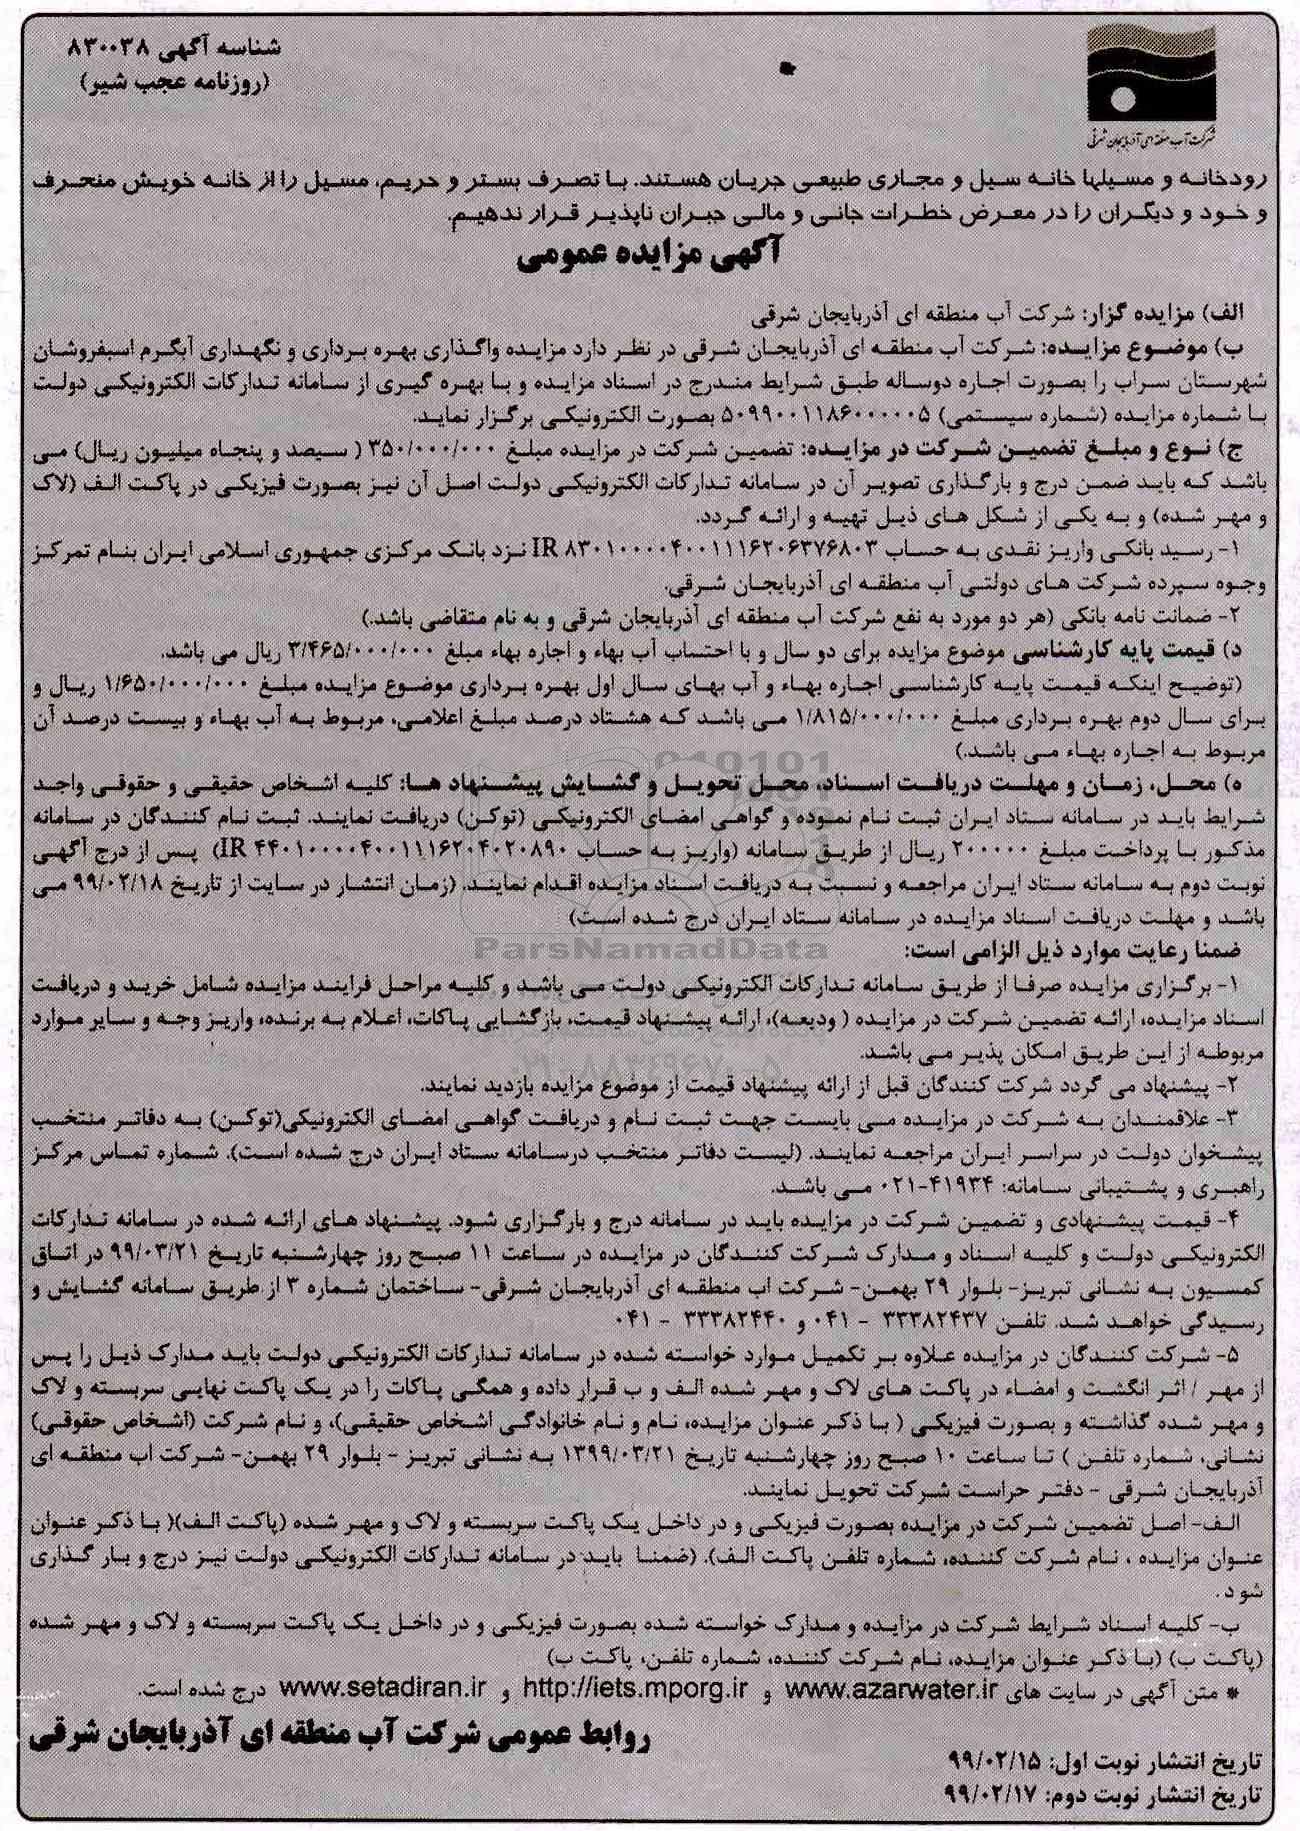 شناسه آگهی ۸۳۰۰۳۸
(روزنامه عجب شیر)
شرکت آب منطقه ای آذربایجان شرقی
رودخانه و مسیلها خانه سیل و مجاری طبیعی جریان هستند. با تصرف بستر و حریم، مسیل را از خانه خویش منحرف
و خود و دیگران را در معرض خطرات جانی و مالی جبران ناپذیر قرار ندهیم.
آگهی مزایده عمومی
الف) مزایده گزار: شرکت آب منطقه ای آذربایجان شرقی
ب) موضوع مزایده: شرکت آب منطقه ای آذربایجان شرقی در نظر دارد مزایده واگذاری بهره برداری و نگهداری آبگرم اسبفروشان
شهرستان سراب را بصورت اجاره دوساله طبق شرایط مندرج در اسناد مزایده و با بهره گیری از سامانه تدارکات الکترونیکی دولت
با شماره مزایده (شماره سیستمی) ۵۰۹۹۰۰۱۱۸۶۰۰۰۰۰۵ بصورت الکترونیکی برگزار نماید.
ج) نوع و مبلغ تضمین شرکت در مزایده: تضمین شرکت در مزایده مبلغ ۳۵۰/۰۰۰/۰۰۰ ( سیصد و پنجاه میلیون ریال) می
باشد که باید ضمن درج و بارگذاری تصویر آن در سامانه تدارکات الکترونیکی دولت اصل آن نیز بصورت فیزیکی در پاکت الف (لاک
و مهر شده) و به یکی از شکل های ذیل تهیه و ارائه گردد.
۱- رسید بانکی واریز نقدی به حساب IR ۸۳۰۱۰۰۰۰۴۰۰۱۱۱۶۲۰۶۳۷۶۸۰۳ نزد بانک مرکزی جمهوری اسلامی ایران بنام تمرکز
وجوه سپرده شرکت های دولتی آب منطقه ای آذربایجان شرقی.
۲- ضمانت نامه بانکی (هر دو مورد به نفع شرکت آب منطقه ای آذربایجان شرقی و به نام متقاضی باشد.)
د) قیمت پایه کارشناسی موضوع مزایده برای دو سال و با احتساب آب بهاء و اجاره بهاء مبلغ ۳/۴۶۵/۰۰۰/۰۰۰ ریال می باشد.
(توضیح اینکه قیمت پایه کارشناسی اجاره بهاء و آب بهای سال اول بهره برداری موضوع مزایده مبلغ ۱/۶۵۰/۰۰۰/۰۰۰ ریال و
برای سال دوم بهره برداری مبلغ ۱/۸۱۵/۰۰۰/۰۰۰ می باشد که هشتاد درصد مبلغ اعلامی، مربوط به آب بهاء و بیست درصد آن
مربوط به اجاره بهاء می باشد.)
ه) محل، زمان و مهلت دریافت اسناد، محل تحویل و گشایش پیشنهاد ها: کلیه اشخاص حقیقی و حقوقی واجد
شرایط باید در سامانه ستاد ایران ثبت نام نموده و گواهی امضای الکترونیکی (توکن) دریافت نمایند. ثبت نام کنندگان در سامانه
مذکور با پرداخت مبلغ ۲۰۰۰۰۰ ریال از طریق سامانه (واریز به حساب IR ۴۴۰۱۰۰۰۰۴۰۰۱۱۱۶۲۰۴۰۲۰۸۹۰) پس از درج آگهی
نوبت دوم به سامانه ستاد ایران مراجعه و نسبت به دریافت اسناد مزایده اقدام نمایند. (زمان انتشار در سایت از تاریخ ۹۹/۰۲/۱۸ می
باشد و مهلت دریافت اسناد مزایده در سامانه ستاد ایران درج شده است)
ParsNamadData
ضمنا رعایت موارد ذیل الزامی است:
۱- برگزاری مزایده صرفا از طریق سامانه تدارکات الکترونیکی دولت می باشد و کلیه مراحل فرایند مزایده شامل خرید و دریافت
اسناد مزایده، ارائه تضمین شرکت در مزایده ( ودیعه)، ارائه پیشنهاد قیمت، بازگشایی پاکات، اعلام به برنده، واریز وجه و سایر موارد
مربوطه از این طریق امکان پذیر می باشد.
۲- پیشنهاد می گردد شرکت کنندگان قبل از ارائه پیشنهاد قیمت از موضوع مزایده بازدید نمایند.
۳- علاقمندان به شرکت در مزایده می بایست جهت ثبت نام و دریافت گواهی امضای الکترونیکی(توکن) به دفاتر منتخب
پیشخوان دولت در سراسر ایران مراجعه نمایند. (لیست دفاتر منتخب درسامانه ستاد ایران درج شده است). شماره تماس مرکز
راهبری و پشتیبانی سامانه: ۴۱۹۳۴-۰۲۱ می باشد.
۴- قیمت پیشنهادی و تضمین شرکت در مزایده باید در سامانه درج و بارگزاری شود. پیشنهاد های ارائه شده در سامانه تدارکات
الکترونیکی دولت و کلیه اسناد و مدارک شرکت کنندگان در مزایده در ساعت ۱۱ صبح روز چهارشنبه تاریخ ۹۹/۰۳/۲۱ در اتاق
کمسیون به نشانی تبریز- بلوار ۲۹ بهمن- شرکت اب منطقه ای آذربایجان شرقی- ساختمان شماره ۳ از طریق سامانه گشایش و
رسیدگی خواهد شد. تلفن ۳۳۳۸۲۴۳۷ - ۰۴۱ و ۳۳۳۸۲۴۴۰ - ۰۴۱
۵- شرکت کنندگان در مزایده علاوه بر تکمیل موارد خواسته شده در سامانه تدارکات الکترونیکی دولت باید مدارک ذیل را پس
از مهر / اثر انگشت و امضاء در پاکت های لاک و مهر شده الف و ب قرار داده و همگی پاکات را در یک پاکت نهایی سربسته و لاک
و مهر شده گذاشته و بصورت فیزیکی ( با ذکر عنوان مزایده، نام و نام خانوادگی اشخاص حقیقی)، و نام شرکت (اشخاص حقوقی)
نشانی، شماره تلفن ) تا ساعت ۱۰ صبح روز چهارشنبه تاریخ ۱۳۹۹/۰۳/۲۱ به نشانی تبریز - بلوار ۲۹ بهمن- شرکت اب منطقه ای
آذربایجان شرقی - دفتر حراست شرکت تحویل نمایند.
الف- اصل تضمین شرکت در مزایده بصورت فیزیکی و در داخل یک پاکت سربسته و لاک و مهر شده (پاکت الف)( با ذکر عنوان
عنوان مزایده ، نام شرکت کننده، شماره تلفن پاکت الف). (ضمنا باید در سامانه تدارکات الکترونیکی دولت نیز درج و بار گذاری
شود.
ب- کلیه اسناد شرایط شرکت در مزایده و مدارک خواسته شده بصورت فیزیکی و در داخل یک پاکت سربسته و لاک و مهر شده
(پاکت ب) (با ذکر عنوان مزایده، نام شرکت کننده، شماره تلفن، پاکت ب)
* متن آگهی در سایت های www.azarwater.ir و http://iets.mporg.ir و www.setadiran.ir درج شده است.
روابط عمومی شرکت آب منطقه ای آذربایجان شرقی
تاریخ انتشار نوبت اول: ۹۹/۰۲/۱۵
تاریخ انتشار نوبت دوم: ۹۹/۰۲/۱۷